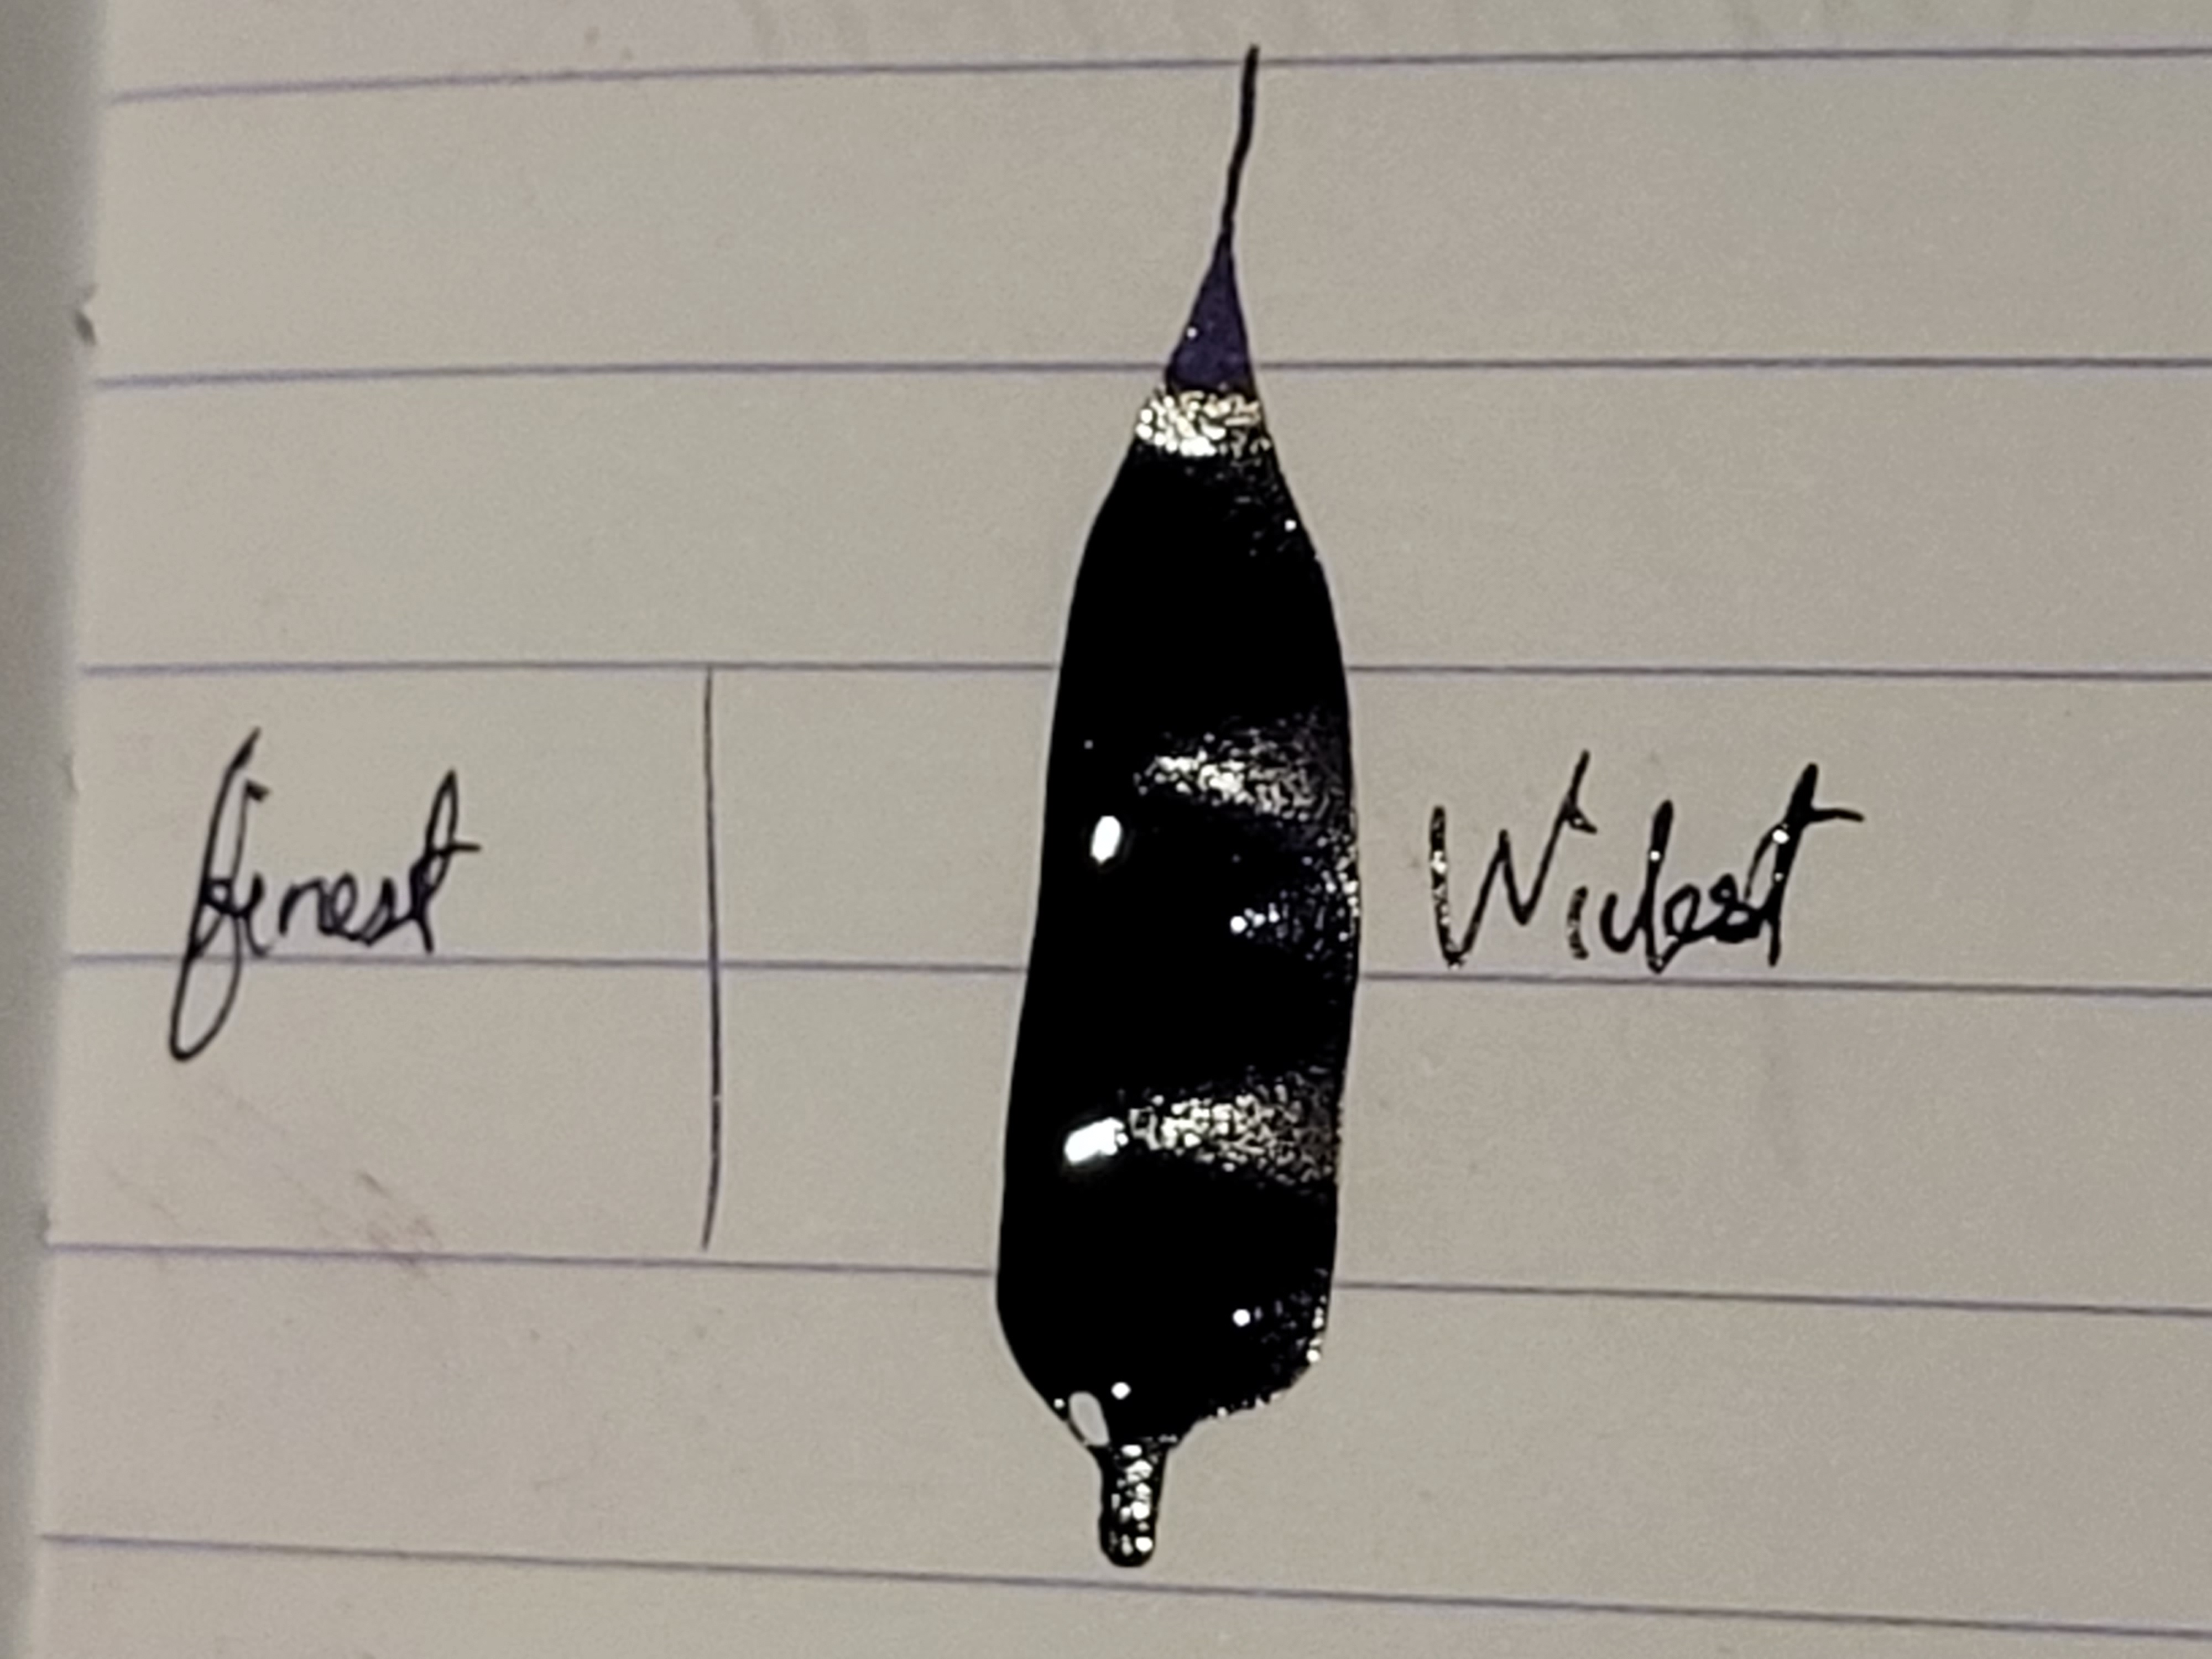 finest
Widest